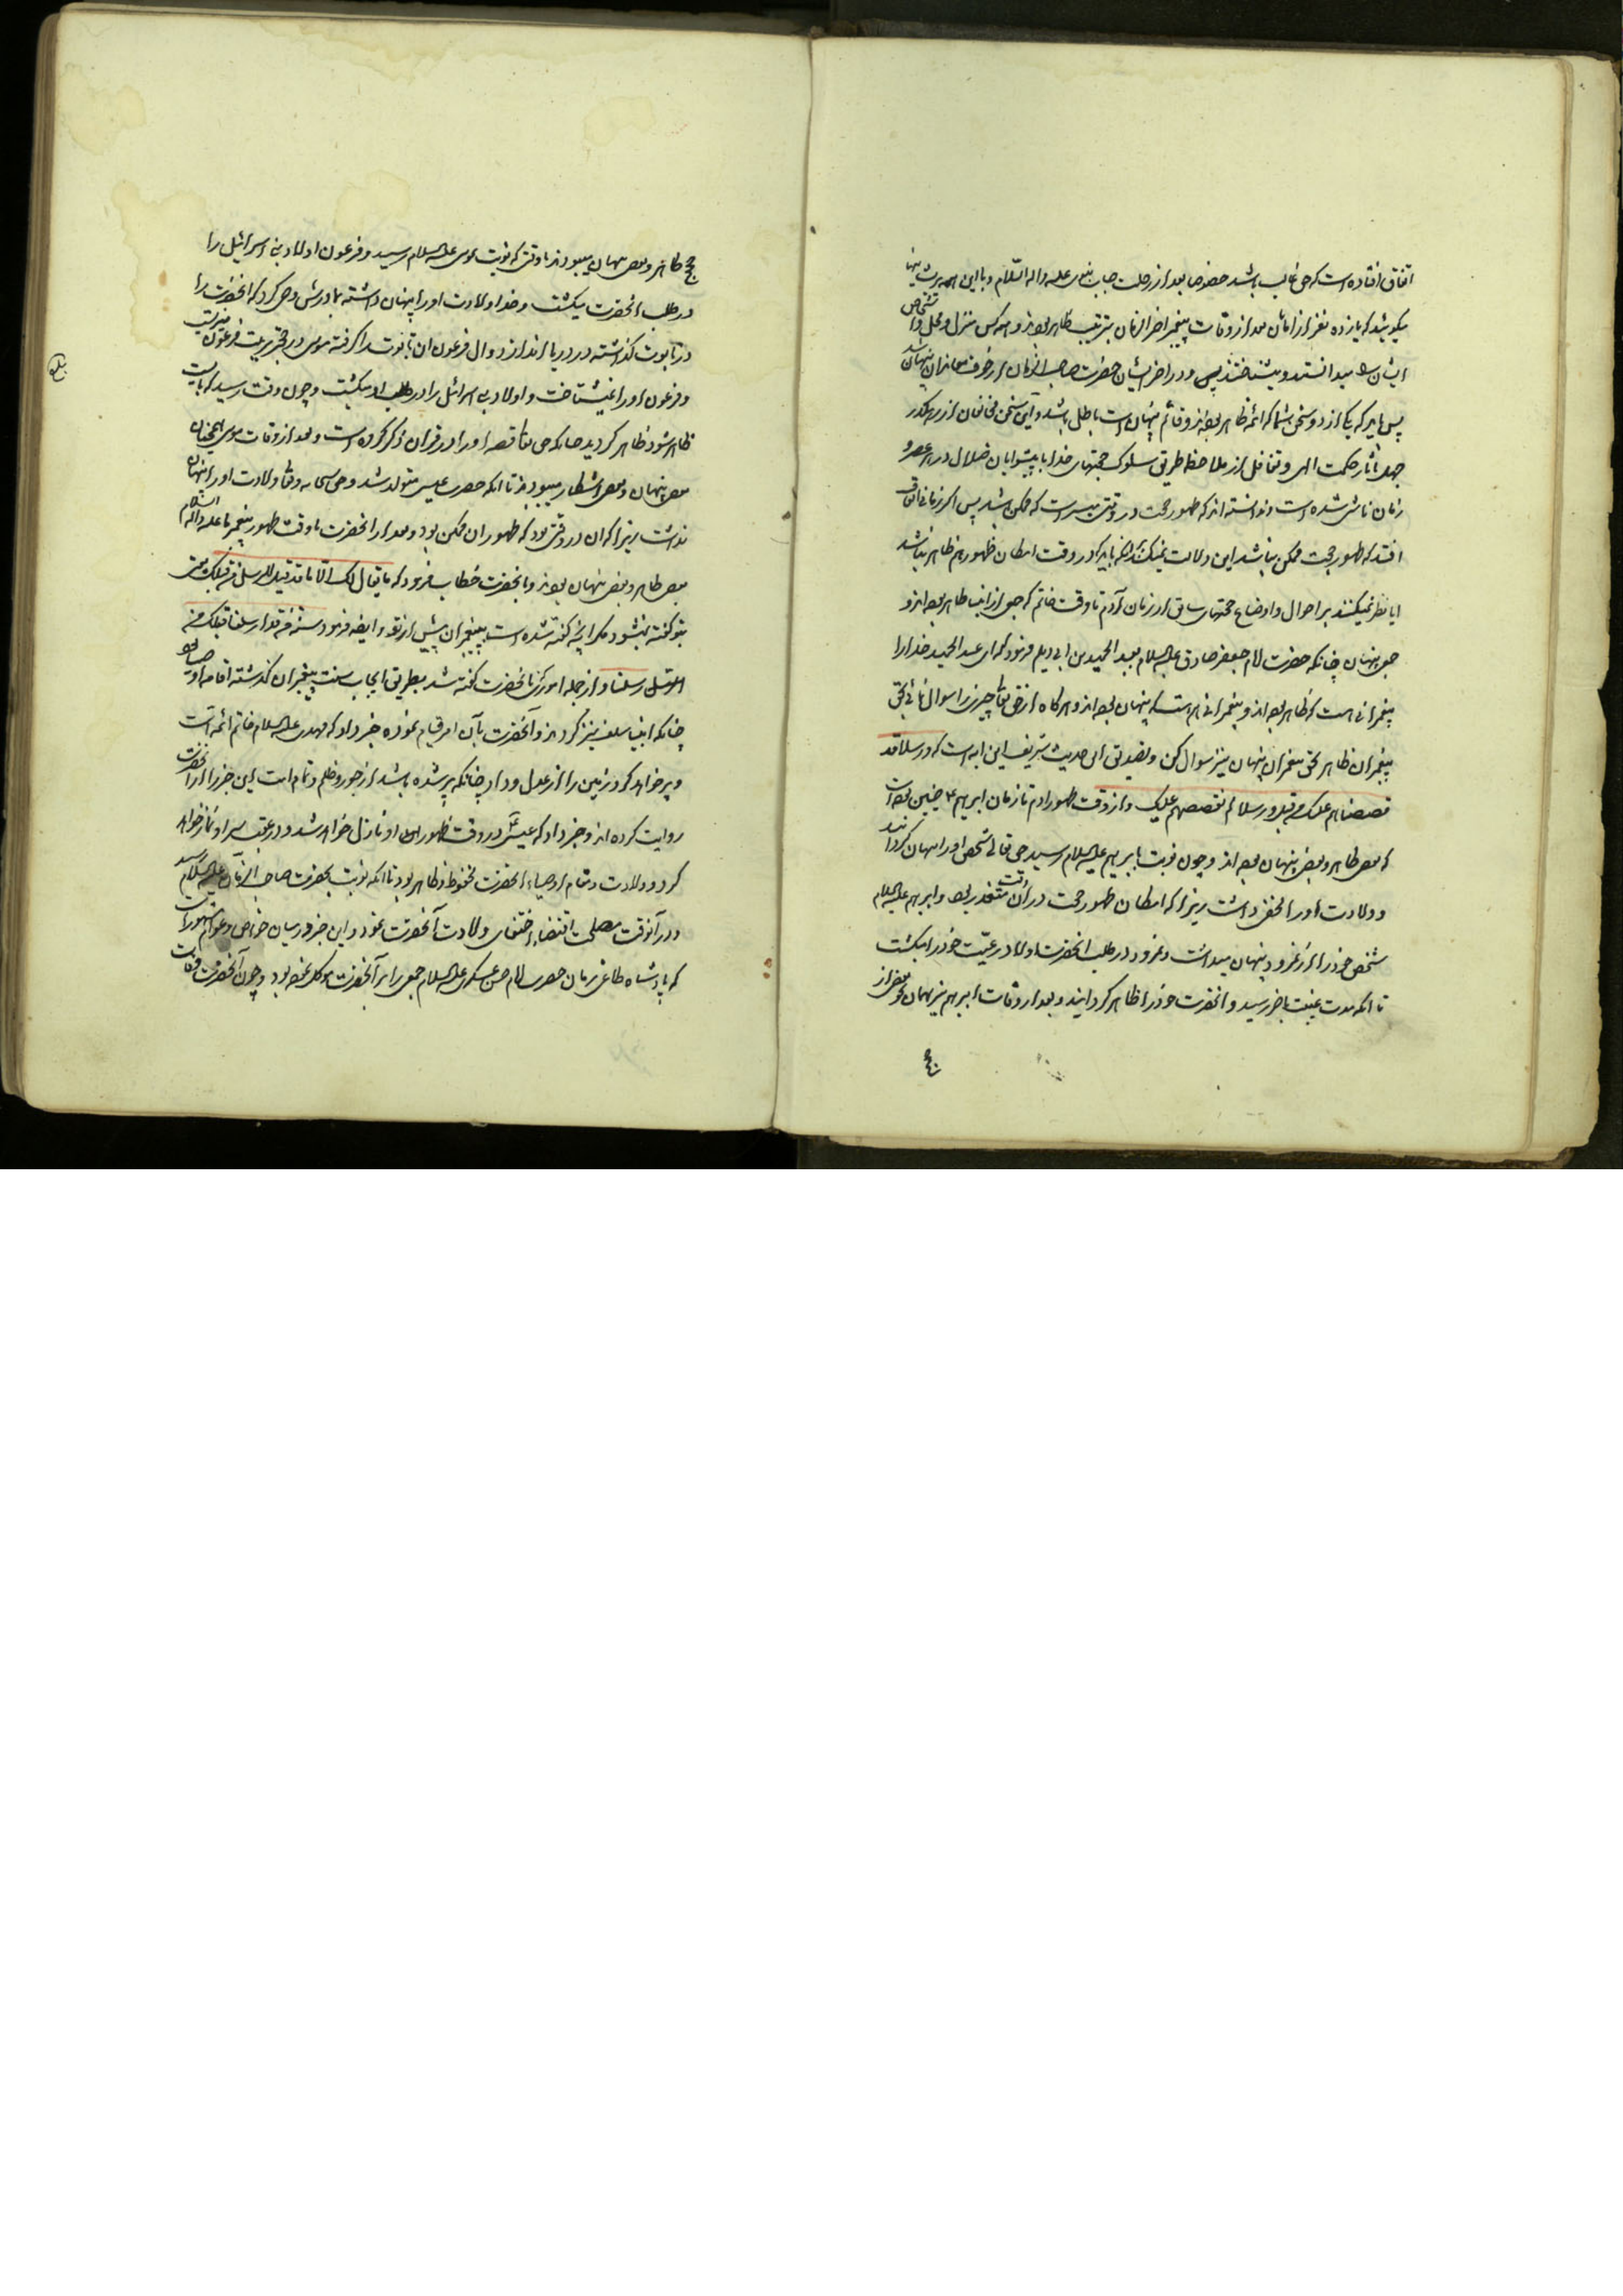 اتفاق افتاده است که حق غالب باشد خصوصا بعد از رحلت جناب نبوی علیه واله السلام و با این همه پریشانیها
میگویند که یازده نفر از امامان بعد از وفات پیغمبر اخر الزمان بترتیب ظاهر بودند و همه کس منزل و محل و اشخاص
ایشان را میدانستند و میشناختند پس در اخر ایشان حضرت صاحب الزمان از خوف معاندان پنهان شد
پس باید که یکی از دو سخن شما که ائمه ظاهر بوده‌اند و قائم پنهان است باطل باشد و این سخن مخالفان از رهگذر
جهل بآثار حکمت الهی و تغافل از ملاحظه طریق سلوک حجتهای خدا با پیشوایان ضلال در هر عصر و
زمان ناشی شده است و ندانسته‌اند که ظهور حجت در وقتی میسر است که ممکن باشد پس اگر زمانی اتفاق
افتد که ظهور حجت ممکن نباشد این دلالت نمیکند بر آنکه باید که در وقت امکان ظهور هم ظاهر نباشد
ایا نظر نمیکنند بر احوال و اوضاع حجتهای سابق از زمان آدم تا وقت خاتم که جمعی از انبیا ظاهر بوده‌اند و
جمعی پنهان چنانکه حضرت امام جعفر صادق علیه السلام بعبد الحمید بن ابی دیلم فرمود که ای عبد الحمید خدا را
پیغمبرانی هست که ظاهر بوده‌اند و پیغمبرانی هم هست که پنهان بوده‌اند و هرگاه از حق تعالی چیزی را سوال نمائی بحق
پیغمبران ظاهر بحق پیغمبران پنهان نیز سوال کن و تصدیق این حدیث شریف این ایه است که و رسلا قد
قصصناهم علیک من قبل و رسلا لم نقصصهم علیک و از وقت ظهور ادم تا زمان ابرهیم ع چنین بوده است
که بعضی ظاهر و بعضی پنهان بوده‌اند و چون نوبت بابرهیم علیه السلام رسید حق تعالی شخص او را پنهان گردانید
و ولادت او را مخفی داشت زیرا که امکان ظهور حجت در آن وقت متعذر بود و ابرهیم علیه السلام
شخص خود را از نمرود پنهان میداشت و نمرود در طلب انحضرت اولاد رعیت خود را میکشت
تا انکه مدت غیبت باخر رسید و انحضرت خود را ظاهر گردانید و بعد از وفات ابرهیم نیز بعضی از
حجج ظاهر و بعضی پنهان میبودند تا وقتی که نوبت موسی علیه السلام رسید و فرعون اولاد بنی اسرائیل را
در طلب انحضرت میکشت و خدا ولادت او را پنهان داشته بمادرش وحی کرد که انحضرت را
در تابوت گذاشته در دریا اندازد و ال فرعون ان تابوت را گرفته موسی در حجر تربیت فرعون میزیست
و فرعون او را نمیشناخت و اولاد بنی اسرائیل را در طلب او میکشت و چون وقت رسید که بایست
ظاهر شود ظاهر گردید چنانکه حق تعالی قصه او را در قران ذکر کرده است و بعد از وفات موسی همچنان
بعضی پنهان و بعضی اشکار میبودند تا انکه حضرت عیسی متولد شد و حق سبحانه و تعالی ولادت او را پنهان
نداشت زیرا که ان در وقتی بود که ظهور ان ممکن بود و بعد از انحضرت تا وقت ظهور پیغمبر ما علیه و اله السلام
بعضی ظاهر و بعضی پنهان بودند و بانحضرت خطاب فرمود که ما یقال لک الا ما قد قیل للرسل من قبلک یعنی
بتو گفته نمیشود مگر انچه گفته شده است به پیغمبران پیش از تو و ایضا فرمود سنة من قد ارسلنا قبلک من
رسلنا و از جمله اموری که بانحضرت گفته شد بطریق ایجاب سنت پیغمبران گذشته اقامه اوصیا بود
چنانکه انبیا سلف نیز کردند و آنحضرت بآن امر قیام نموده خبر داد که مهدی علیه السلام خاتم ائمه است
و پر خواهد کرد زمین را از عدل و داد چنانکه پر شده باشد از جور و ظلم و تمام امت این خبر را از انحضرت
روایت کرده‌اند و خبر داد که عیسی در وقت ظهور او نازل خواهد شد و در عقب سر او نماز خواهد
کرد و ولادت تمام اوصیاء انحضرت محفوظ و ظاهر بود تا انکه نوبت بحضرت صاحب الزمان علیه السلام رسید
و در آنوقت مصلحت اقتضاء اختفای ولادت آنحضرت نمود و این خبر در میان خواص و عوام مشهور است
که پادشاه طاغی زمان حضرت امام حسن عسکری علیه السلام جمعی را بر آنحضرت موکل نموده بود و چون آنحضرت وفات